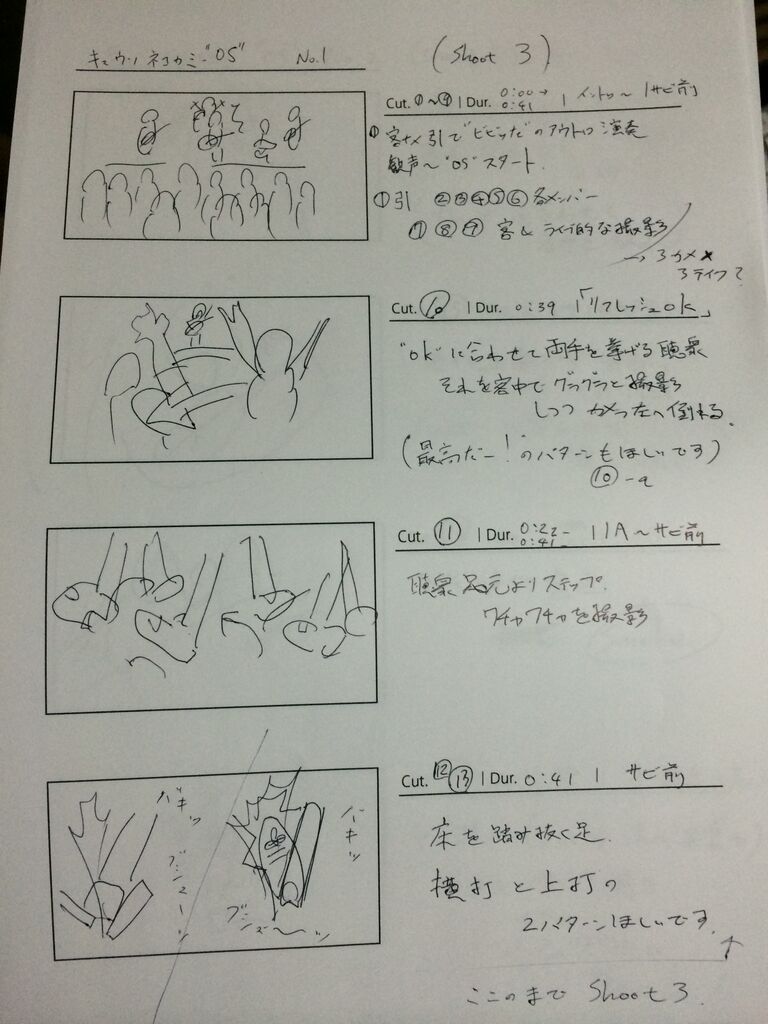 キュウソネコカミ "OS" No.1
(Shoot 3)
Cut. ①~⑨ | Dur. 0:00→ 0:41 | イントロ~1サビ前
① 客ナメ引で"ビビった"のアウトロ演奏
歓声~"OS"スタート.
①引 ②③④⑤⑥各メンバー
⑦⑧⑨ 客&ライブ的な撮影
→ 3カメ×
3テイク?
Cut. ⑩ | Dur. 0:39 |「リフレッシュOK」
"ok"に合わせて両手を挙げる聴衆
それを客中でグラグラと撮影
しつつ カメラ左へ倒れる.
(最高だー!のパターンもほしいです)
⑩-a
Cut. ⑪ | Dur. 0:22- 0:41 | 1A~サビ前
聴衆 足元よりステップ.
ワチャワチャを撮影
Cut. ⑫⑬ | Dur. 0:41 | サビ前
バキッ
ブシューッ
バキッ
ブシュ~ッ
床を踏み抜く足.
横打と上打の
2パターンほしいです.
↑
ここのまで Shoot 3.